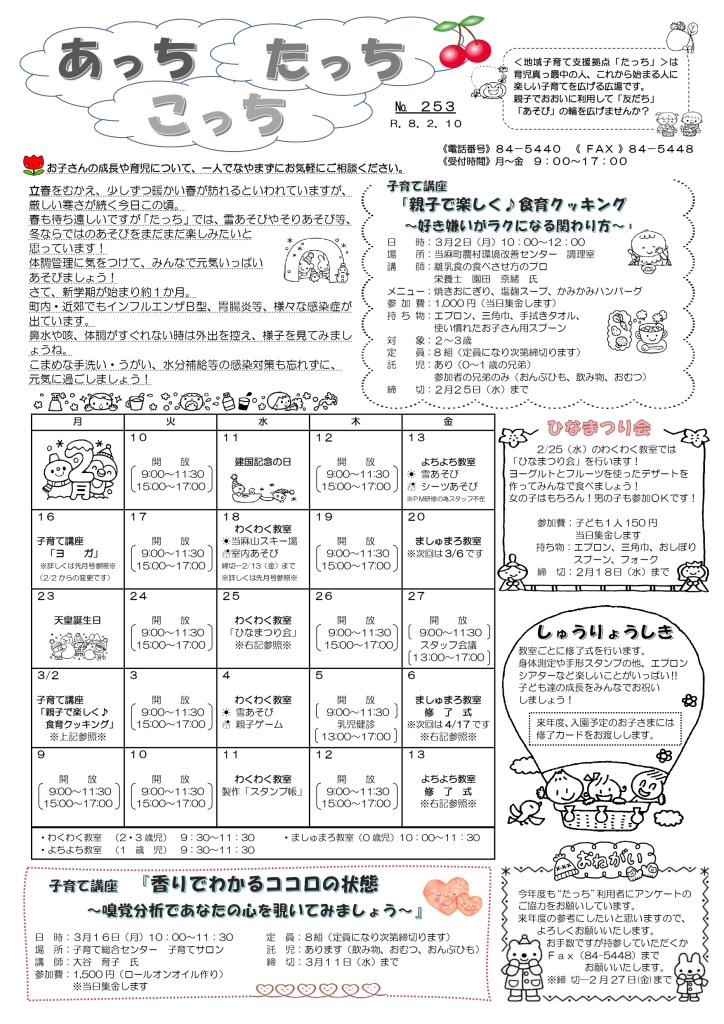 あっち　たっち
こっち
№　２５３
Ｒ．８．２．１０
＜地域子育て支援拠点「たっち」＞は
育児真っ最中の人、これから始まる人に
楽しい子育てを広げる広場です。
親子でおおいに利用して「友だち」
「あそび」の輪を広げませんか？
《電話番号》８４－５４４０　《 ＦＡＸ 》８４－５４４８
《受付時間》月～金　９：００～１７：００
お子さんの成長や育児について、一人でなやまずにお気軽にご相談ください。
立春をむかえ、少しずつ暖かい春が訪れるといわれていますが、
厳しい寒さが続く今日この頃。
春も待ち遠しいですが「たっち」では、雪あそびやそりあそび等、
冬ならではのあそびをまだまだ楽しみたいと
思っています！
体調管理に気をつけて、みんなで元気いっぱい
あそびましょう！
さて、新学期が始まり約１か月。
町内・近郊でもインフルエンザＢ型、胃腸炎等、様々な感染症が
出ています。
鼻水や咳、体調がすぐれない時は外出を控え、様子を見てみまし
ょうね。
こまめな手洗い・うがい、水分補給等の感染対策も忘れずに、
元気に過ごしましょう！
子育て講座
「親子で楽しく♪食育クッキング
～好き嫌いがラクになる関わり方～」
日　　時：３月２日（月）１０：００～１２：００
場　　所：当麻町農村環境改善センター　調理室
講　　師：離乳食の食べさせ方のプロ
栄養士　園田　奈緒　氏
メニュー：焼きおにぎり、塩麹スープ、かみかみハンバーグ
参 加 費：1,000円（当日集金します）
持 ち 物：エプロン、三角巾、手拭きタオル、
使い慣れたお子さん用スプーン
対　　象：２～３歳
定　　員：８組（定員になり次第締切ります）
託　　児：あり（０～１歳の兄弟）
参加者の兄弟のみ（おんぶひも、飲み物、おむつ）
締　　切：２月２５日（水）まで
月　火　水　木　金
２月
１０
開　放
９:００～１１:３０
１５:００～１７:００
１１
建国記念の日
１２
開　放
９:００～１１:３０
１５:００～１７:００
１３
よちよち教室
☀ 雪あそび
☃ シーツあそび
※ＰＭ研修の為スタッフ不在
１６
子育て講座
「ヨ　　ガ」
※詳しくは先月号参照※
（2/2からの変更です）
１７
開　放
９:００～１１:３０
１５:００～１７:００
１８
わくわく教室
☀当麻山スキー場
☃室内あそび
締切―2/13（金）まで
※詳しくは先月号参照※
１９
開　放
９:００～１１:３０
１５:００～１７:００
２０
ましゅまろ教室
※次回は3/6です
２３
天皇誕生日
２４
開　放
９:００～１１:３０
１５:００～１７:００
２５
わくわく教室
「ひなまつり会」
※右記参照※
２６
開　放
９:００～１１:３０
１５:００～１７:００
２７
開　放
９:００～１１:３０
スタッフ会議
１３:００～１７:００
３/２
子育て講座
「親子で楽しく♪
食育クッキング」
※上記参照※
３
開　放
９:００～１１:３０
１５:００～１７:００
４
わくわく教室
☀ 雪あそび
☃ 親子ゲーム
５
開　放
９:００～１１:３０
乳児健診
１３:００～１７:００
６
ましゅまろ教室
修　了　式
※次回は4/17です
※右記参照※
９
開　放
９:００～１１:３０
１５:００～１７:００
１０
開　放
９:００～１１:３０
１５:００～１７:００
１１
わくわく教室
製作「スタンプ帳」
１２
開　放
９:００～１１:３０
１５:００～１７:００
１３
よちよち教室
修　了　式
※右記参照※
・わくわく教室　（２・３歳児）　９：３０～１１：３０　　・ましゅまろ教室（０歳児）１０：００～１１：３０
・よちよち教室　（１　歳　児）　９：３０～１１：３０
ひなまつり会
２/２５（水）のわくわく教室では
「ひなまつり会」を行います！
ヨーグルトとフルーツを使ったデザートを
作ってみんなで食べましょう！
女の子はもちろん！男の子も参加ＯＫです！
参加費：子ども１人150円
当日集金します
持ち物：エプロン、三角巾、おしぼり
スプーン、フォーク
締　切：２月１８日（水）まで
しゅうりょうしき
教室ごとに修了式を行います。
身体測定や手形スタンプの他、エプロン
シアターなど楽しいことがいっぱい!!
子ども達の成長をみんなでお祝い
しましょう！
来年度、入園予定のお子さまには
修了カードをお渡しします。
おねがい
今年度も“たっち”利用者にアンケートの
ご協力をお願いしています。
来年度の参考にしたいと思いますので、
よろしくお願いいたします。
お手数ですが持参していただくか
Ｆａｘ（84-5448）まで
お願いいたします。
※締 切―２月２７日(金)まで
子育て講座　『香りでわかるココロの状態
～嗅覚分析であなたの心を覗いてみましょう～』
日　時：３月１６日（月）１０：００～１１：３０
場　所：子育て総合センター　子育てサロン
講　師：大谷　育子　氏
参加費：1,500円（ロールオンオイル作り）
※当日集金します
定　員：８組（定員になり次第締切ります）
託　児：あります（飲み物、おむつ、おんぶひも）
締　切：３月１１日（水）まで